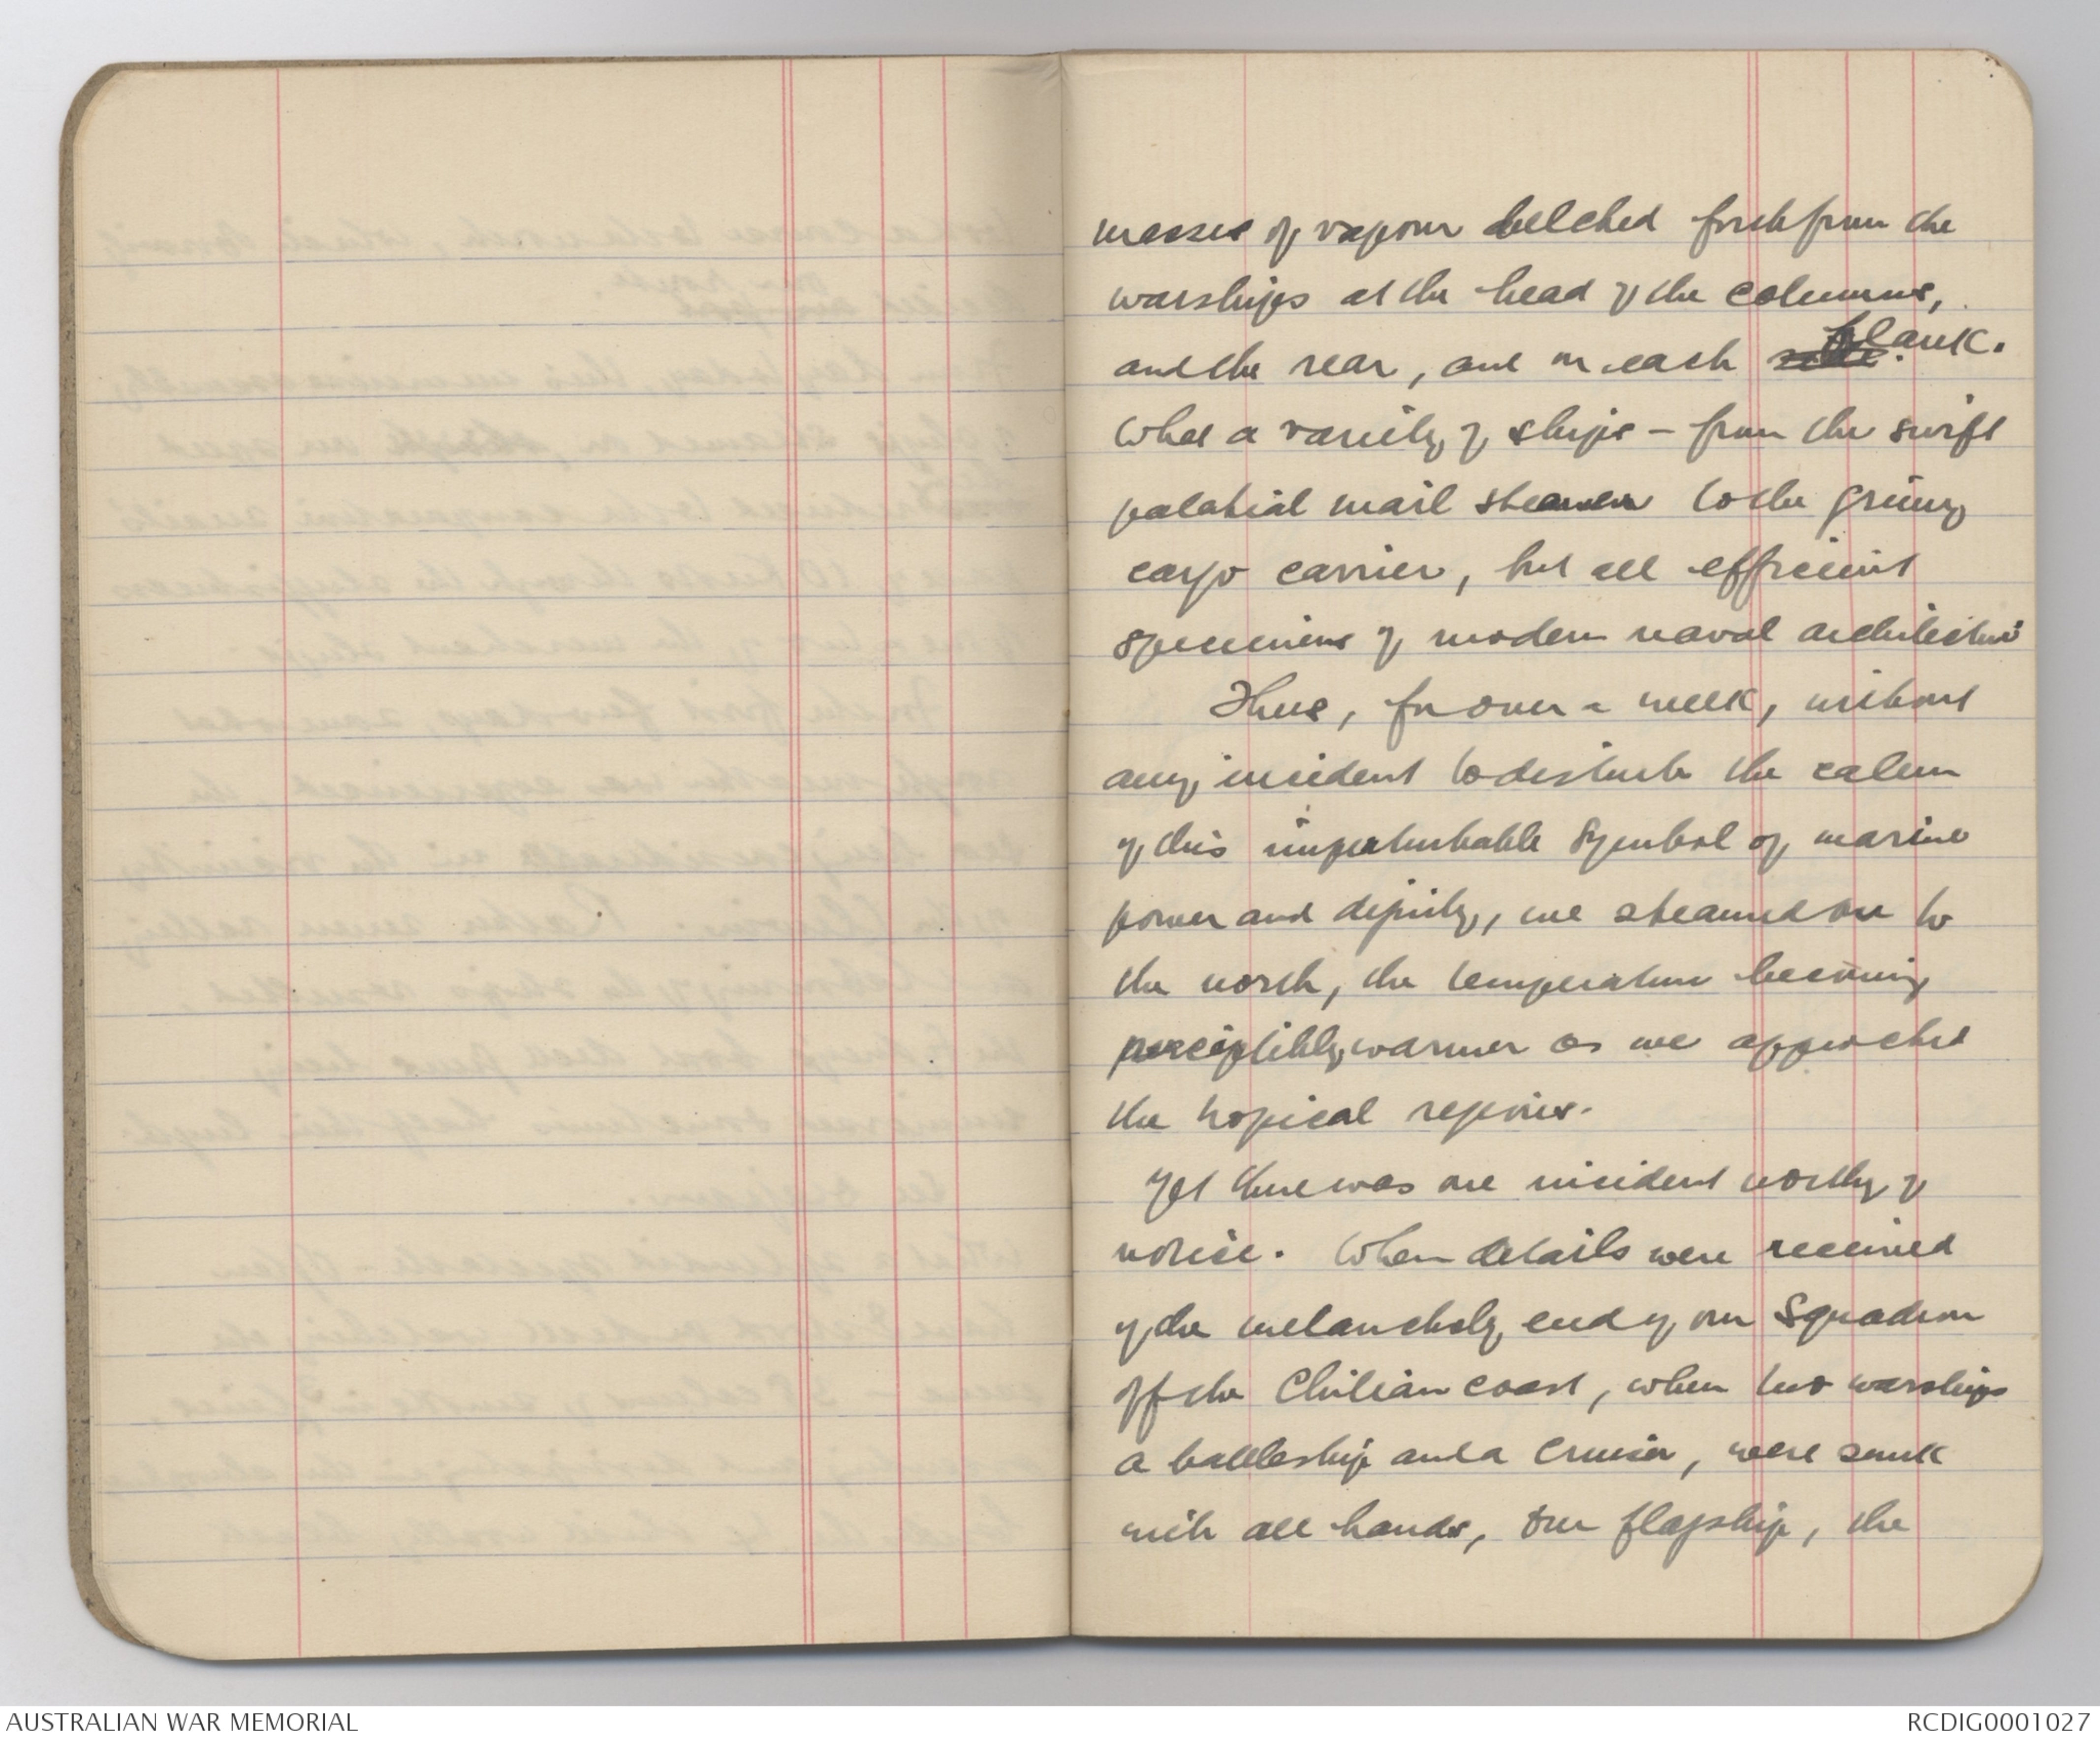 masses of vapour belched forth from the
warships at the head of the columns,
and the rear, and on each side. flank.
What a variety of ships – from the swift
palatial mail steamer to the grimy
cargo carrier, but all efficient
specimens of modern naval architecture
Thus, for over a week, without
any incident to disturb the calm
of this imperturbable symbol of marine
power and dignity, we steamed on to
the north, the temperature becoming
perceptibly warmer as we approached
the tropical regions.
Yet there was one incident worthy of
notice. When details were received
of the melancholy end of our Squadron
off the Chilian coast, when two warships
a battleship and a cruiser, were sunk
with all hands, our flagship, the
AUSTRALIAN WAR MEMORIAL
RCDIG0001027